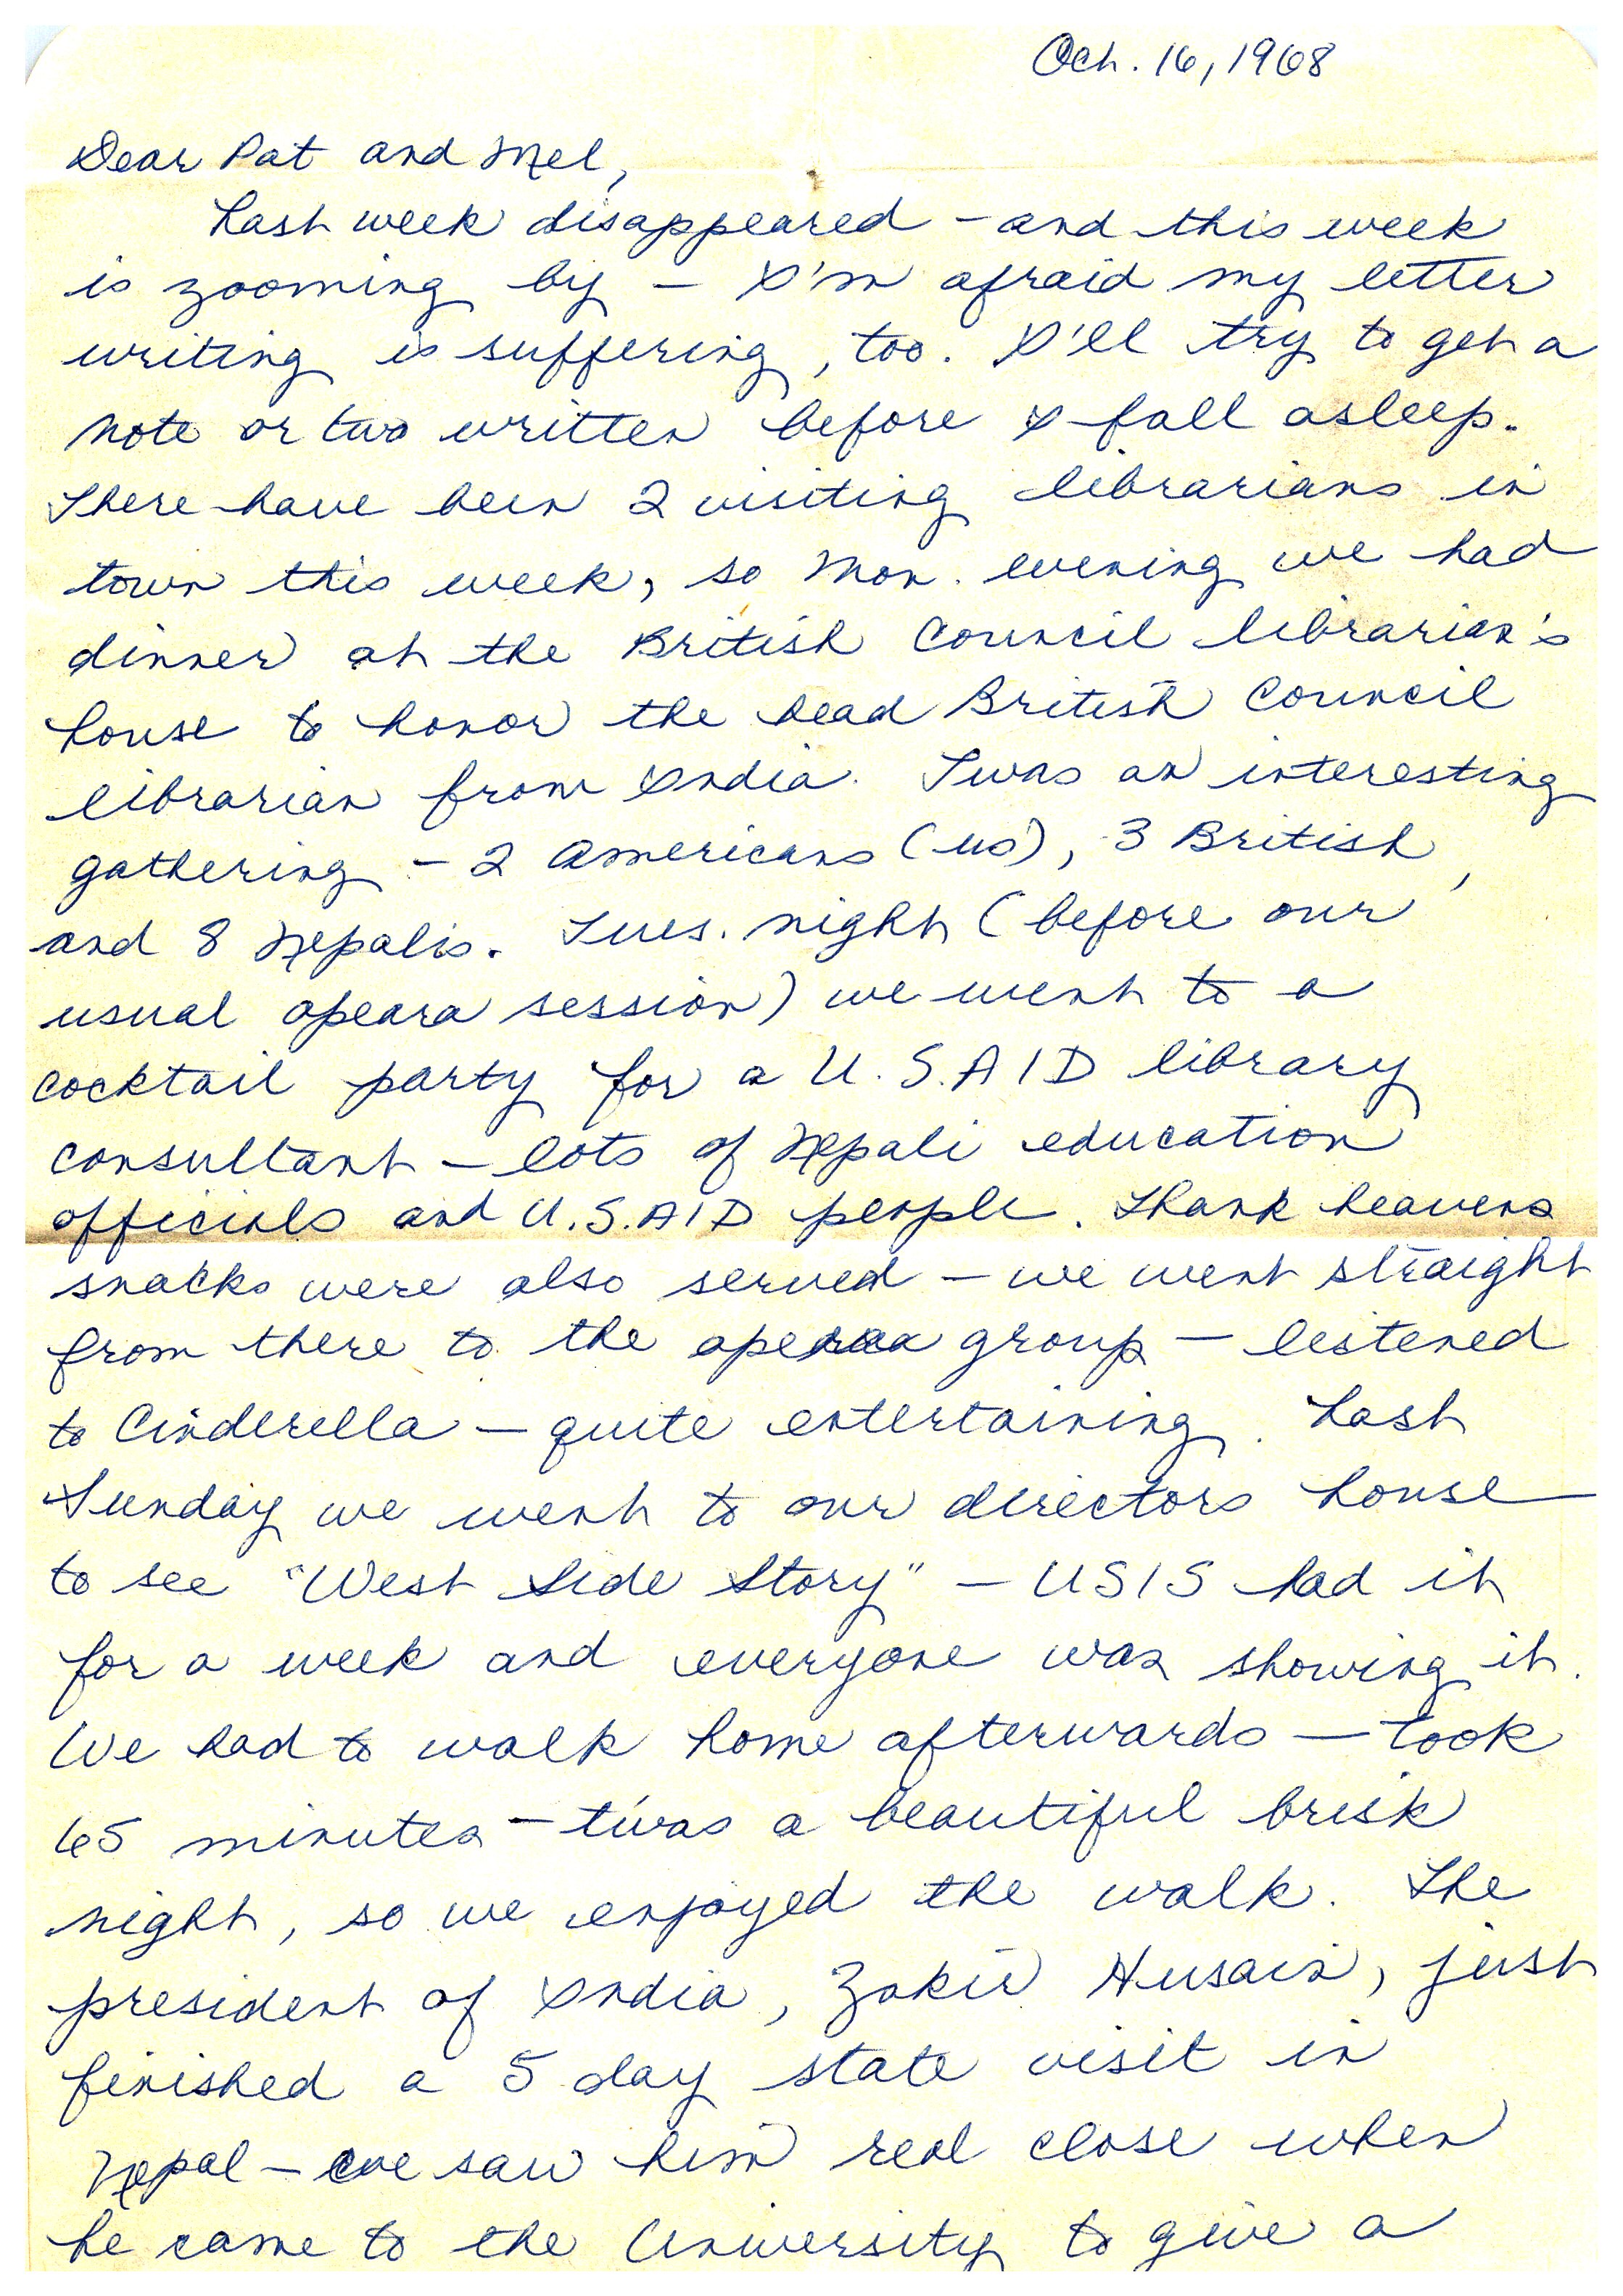 Oct. 16, 1968
Dear Pat and Mel,
Last week disappeared – and this week
is zooming by – I'm afraid my letter
writing is suffering, too. I'll try to get a
note or two written before I fall asleep.
There have been 2 visiting librarians in
town this week, so Mon. evening we had
dinner at the British Council librarian's
house to honor the head British Council
librarian from India. Twas an interesting
gathering – 2 Americans (us), 3 British,
and 8 Nepalis. Tues. night (before our
usual opeara session) we went to a
cocktail party for a U.S.AID library
consultant – lots of Nepali education
officials and U.S.AID people. Thank heavens
snacks were also served – we went straight
from there to the opera group – listened
to Cinderella – quite entertaining. Last
Sunday we went to our directors house
to see "West Side Story" – USIS had it
for a week and everyone was showing it.
We had to walk home afterwards – took
65 minutes – t'was a beautiful brisk
night, so we enjoyed the walk. The
president of India, Zakir Husain, just
finished a 5 day state visit in
Nepal – we saw him real close when
he came to the University to give a